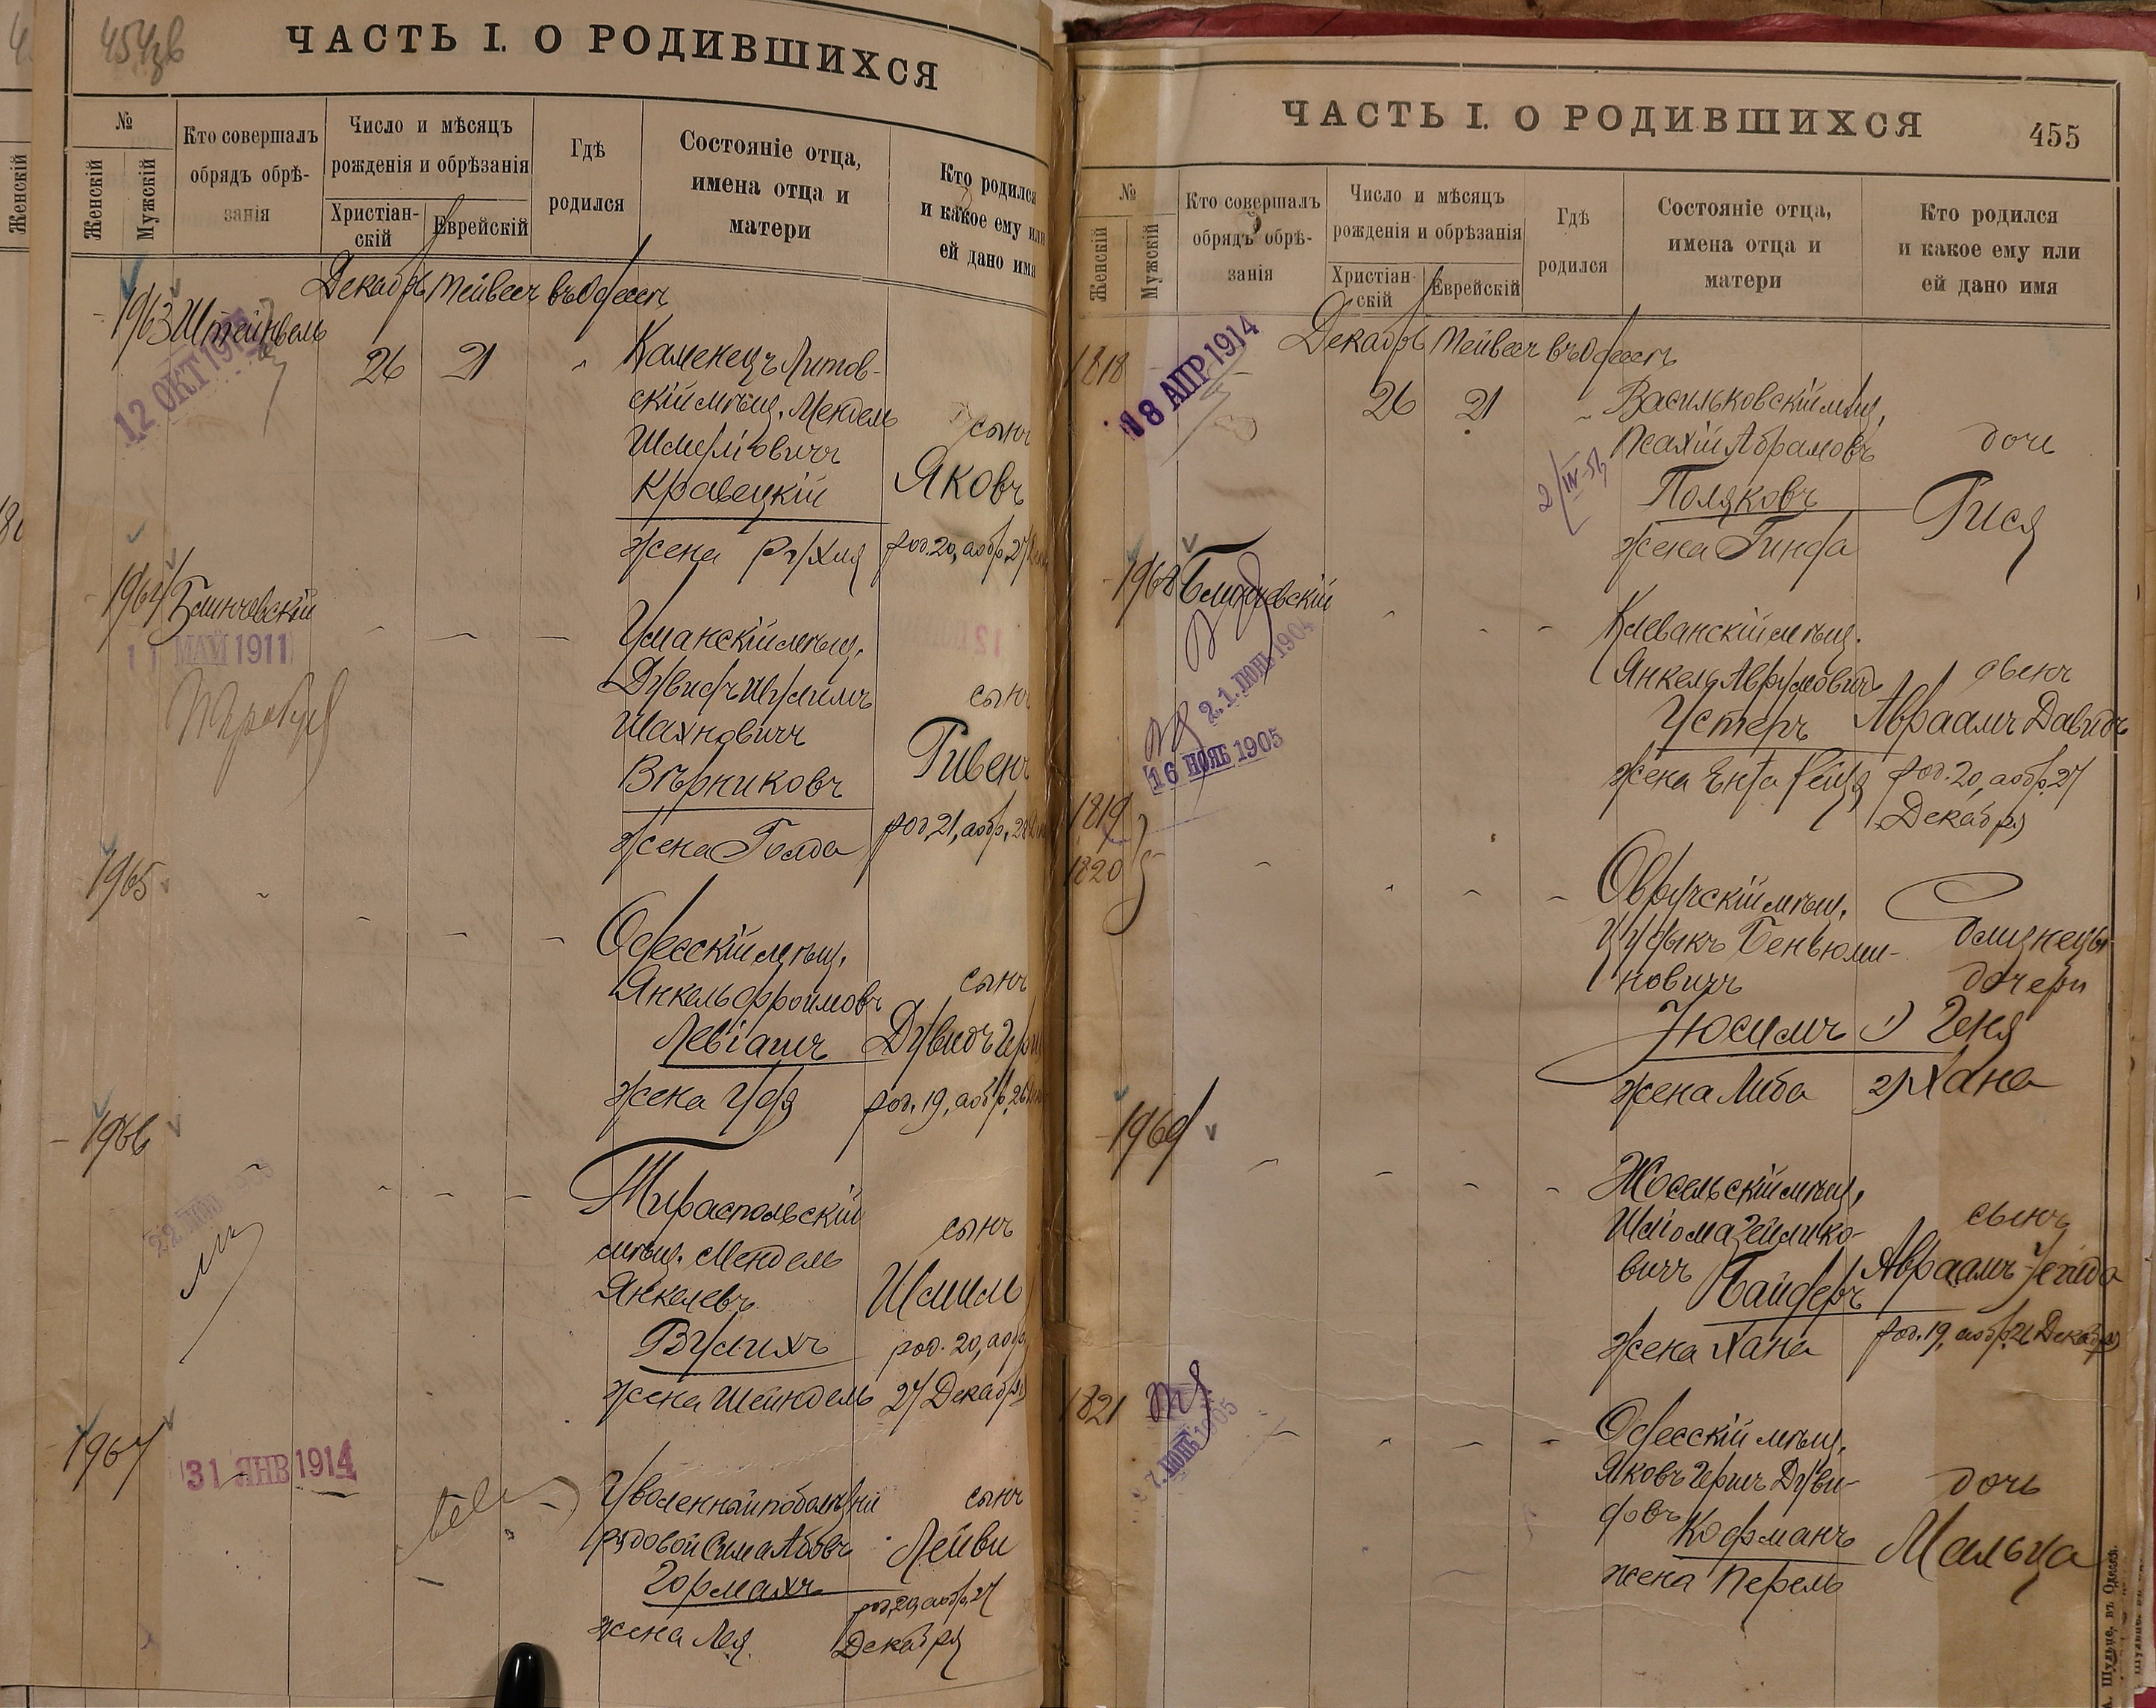 454 зв
ЧАСТЬ I. О РОДИВШИХСЯ
№
Женскій
Мужскій
Кто совершалъ
обрядъ обрѣ-
занія
Число и мѣсяцъ
рожденія и обрѣзанія
Христіан-
скій
Еврейскій
Гдѣ
родился
Состояніе отца,
имена отца и
матери
Кто родился
и какое ему или
ей дано имя
Декабрь Тейвесъ въ Одессѣ
1963 Штейнвель
12 ОКТ
26 21 "
Каменецъ Литов-
скій мѣщ. Мендель
Шмерловичъ
Кравецкій
жена Рухля
сынъ
Яковъ
род. 20, аобр. 27
1964 Блинчевскій
11 МАЙ 1911
Уманскій мѣщ.
Дувидъ
Шахновичъ
Вѣрниковъ
жена Голда
сынъ
Рувенъ
род. 21, аобр. 28
1965
Одесскій мѣщ.
Янкель Фроимовъ
Левіашъ
жена
сынъ
Дувидъ
род. 19, аобр. 26
1966
Тираспольскій
мѣщ. Мендель
Янкелевъ
Вулихъ
жена Шейндель
сынъ
Шмиль
род. 20, аобр.
27 Декабря
1967
31 ЯНВ 1914
Уволенный по болѣзни
рядовой Сима Абовъ
Гормахъ
жена Лея
сынъ
Лейви
род. 20, аобр. 27
Декабря
ЧАСТЬ I. О РОДИВШИХСЯ
455
№
Женскій
Мужскій
Кто совершалъ
обрядъ обрѣ-
занія
Число и мѣсяцъ
рожденія и обрѣзанія
Христіан-
скій
Еврейскій
Гдѣ
родился
Состояніе отца,
имена отца и
матери
Кто родился
и какое ему или
ей дано имя
Декабрь Тейвесъ въ Одессѣ
1818
18 АПР 1914
26 21 "
Васильковскій мѣщ.
Псахій Абрамовъ
Поляковъ
жена Гинда
дочь
Рися
1968 Блинчевскій
21 ІЮНЬ 1904
16 НОЯБ 1905
Клеванскій мѣщ.
Янкель Аврумовичъ
Устеръ
жена Ента Рейзя
сынъ
Авраамъ Давидъ
род. 20, аобр. 27
Декабря
1819
1820
Овручскій мѣщ.
Цудыкъ Беньюми-
новичъ
Зюсимъ
жена Либа
близнецы
дочери
1) Геня
2) Хана
1969
Жосельскій мѣщ.
Шлома Зейлико-
вичъ Байдеръ
жена Хана
сынъ
Авраамъ
род. 19, аобр. 26 Декабря
1821
Одесскій мѣщ.
Яковъ Гершъ Дуви-
довъ Кофманъ
жена Перель
дочь
Мальца
Шульце, въ Одессѣ.